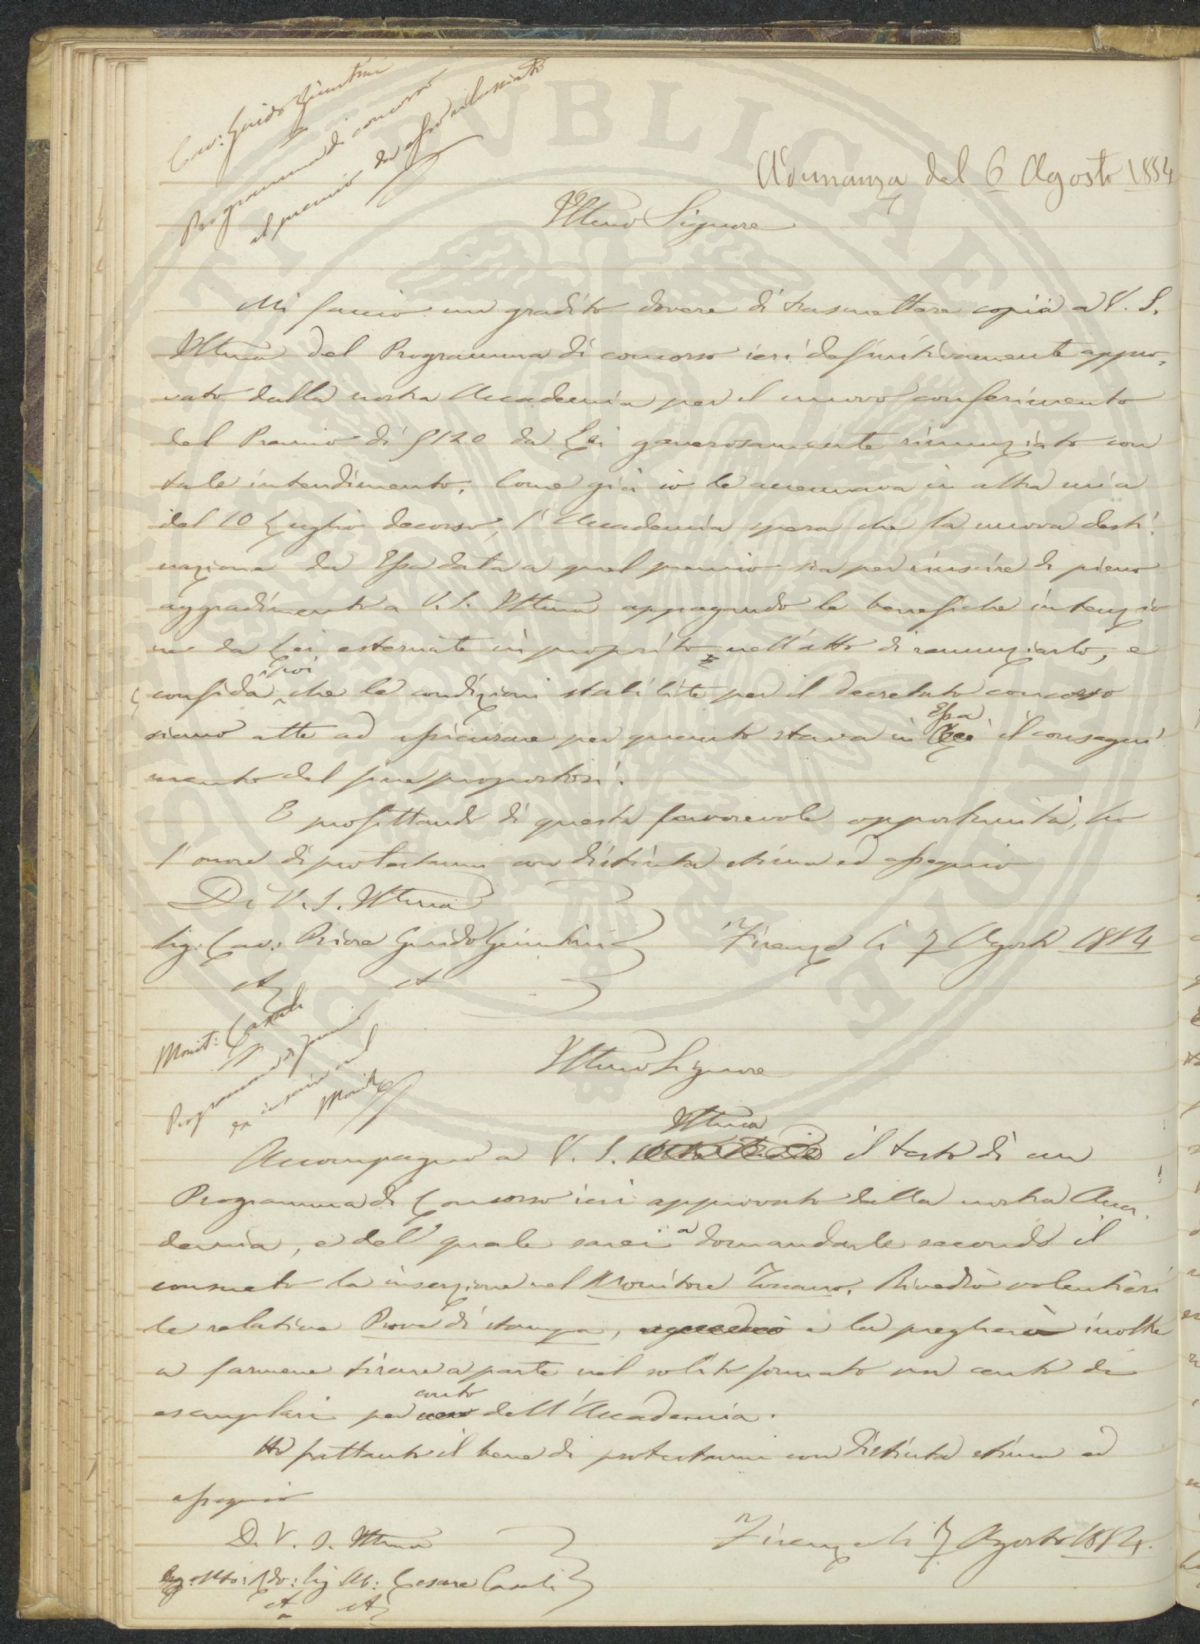 Cav: Guido Giuntini
Programma di concorso
al premio da esso rilasciato
Adunanza del 6 Agosto 1854
Illmo Signore
Mi faccio un gradito dovere di trasmettere copia a V. S.
Illma del Programma di concorso ieri definitivamente appro-
vato dalla nostra Accademia per il nuovo conferimento
del Premio di £ 120 da Lei generosamente rinunziato con
tale intendimento. Come già io le accennava in altra mia
del 10 Luglio decorso, l'Accademia spera che la nuova desti-
nazione da Essa data a quel premio sia per riuscire di pieno
aggradimento a V. S. Illma appagando le benefiche intenzio
ni da Lei esternate in proposito nell'atto di renunziarlo, e
confida che le condizioni stabilite per il decretato concorso
siano atte ad assicurare per quanto stava in Essa il consegui-
mento del fine propostosi.
E profittando di questa favorevole opportunità, ho
l'onore di protestarmi con distinta stima ed ossequio
Di V. S. Illma
Sig: Cav: Priore Guido Giuntini
Firenze li 7 Agosto 1854
Monit:
Programma di
da inserirsi nel
Monit
Illmo Signore
Accompagno a V. S. Illma il testo di un
Programma di Concorso ieri approvato dalla nostra Acca-
demia, e del quale sarei a domandarle secondo il
consueto la inserzione nel Monitore Toscano. Rivedrò volentieri
le relative Prove di stampa, e la pregherò inoltre
a farmene tirare a parte nel solito formato un cento di
esemplari per conto dell'Accademia.
Ho frattanto il bene di protestarmi con distinta stima ed
ossequio
Di V. S. Illma
Firenze li 7 Agosto 1854.
Cesare